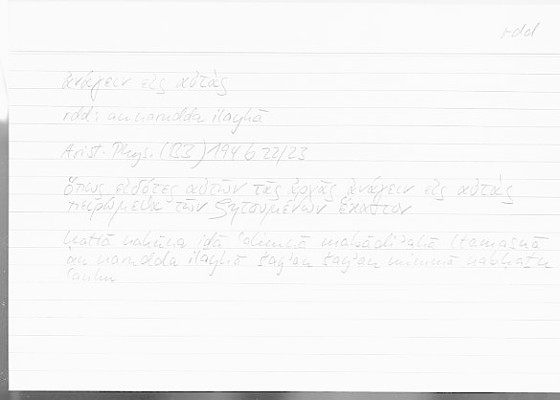 rdd
ἀνάγειν εἰς αὐτάς
rdd: an narudda ilayhā
Arist. Phys. (B3) 194 b 22/23
ὅπως εἰδότες αὐτῶν τὰς ἀρχὰς ἀνάγειν εἰς αὐτὰς
πειρώμεθα τῶν ζητουμένων ἕκαστον
ḥattā nakūna iḏā ʿalimnā mabādiʾahā
an narudda ilayhā šayʾan šayʾan mimmā nabḥaṯu
ʿanhu